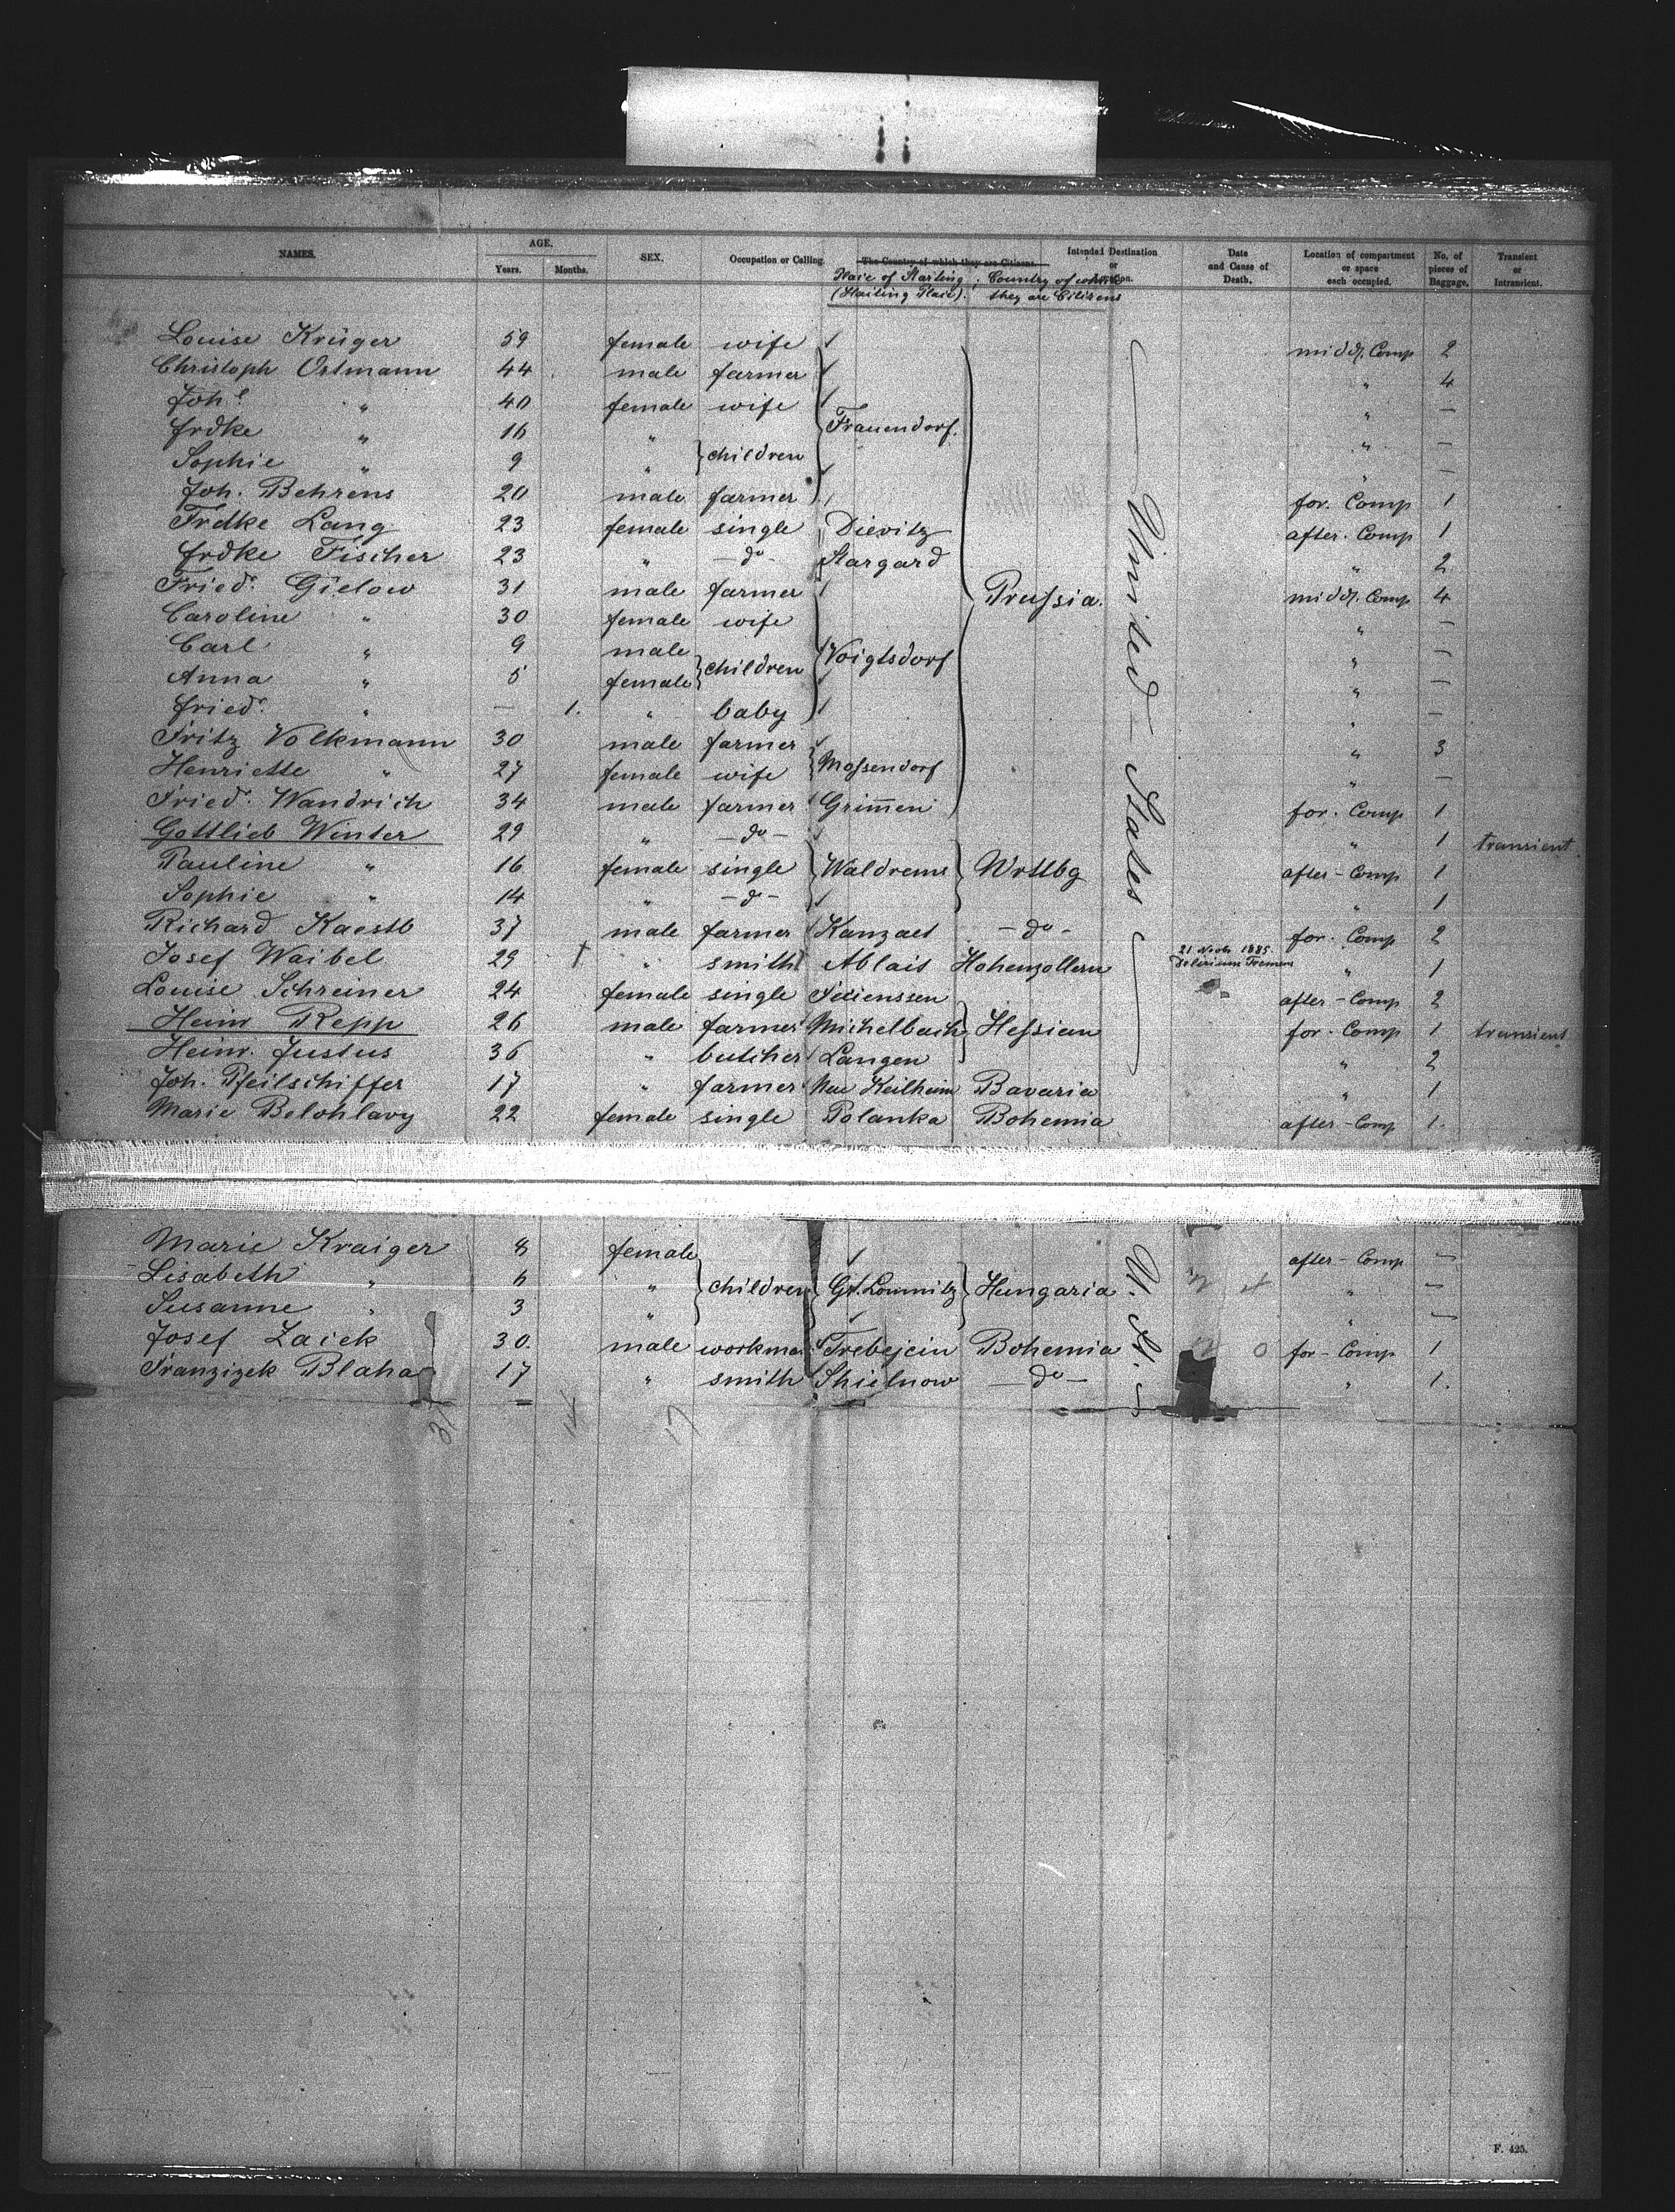 NAMES. AGE. SEX. Occupation or Calling. The Country of which they are Citizens. Intended Destination or Location. Date and Cause of Death. Location of compartment or space each occupied. No. of pieces of Baggage. Transient or Intransient.
Years. Months. Place of Starting (Starting Place). ; Country of which they are Citizens
Louise Krüger 59 female wife middl. Comp 2
Christoph Ostmann 44 male farmer " 4
Joh. " 40 female wife " —
Frdke " 16 " children Frauendorf. " —
Sophie " 9 " " —
Joh. Behrens 20 male farmer for. Comp 1
Frdke Lang 23 female single Dievitz after. Comp 1
Frdke Fischer 23 " — do Stargard " 2
Fried. Gielow 31 male farmer Prussia. middl. Comp 4
Caroline " 30 female wife " —
Carl " 9 male children Voigtsdorf " —
Anna " 5 female " —
Fried. " — 1. " baby " —
Fritz Volkmann 30 male farmer " 3
Henriette " 27 female wife Mossendorf " —
Fried. Wandrich 34 male farmer Grimmen for. Comp 1
Gottlieb Winter 29 " — do — " 1 transient.
Pauline " 16 female single Waldrems Wrttbg after - Comp 1
Sophie " 14 " — do — " 1
Richard Kaestb 37 male farmer Kanzaet — do — for. Comp 2
Josef Waibel 29 † " smith Ablais Hohenzollern 21 Novb. 1885. Delirium Tremens " 1
Louise Schreiner 24 female single after - Comp 2
Heinr Repp 26 male farmer Michelbach Hessian for. Comp 1 transient
Heinr. Justus 36 " butcher Langen " 2
Joh. Pfeilschiffer 17 " farmer Neu Keilheim Bavaria " 1
Marie Belohlavy 22 female single Polanka Bohemia after - Comp 1.
United States
Marie Kraiger 8 female after - Comp —
Lisabeth " 6 " children Gt. Lomnitz Hungaria " —
Susanne " 3 " " —
Josef Zaick 30. male workman Trebejcin Bohemia for - Comp 1
Franzizek Blaha 17 " smith Shielnow — do — " 1.
U. St.
F. 425.